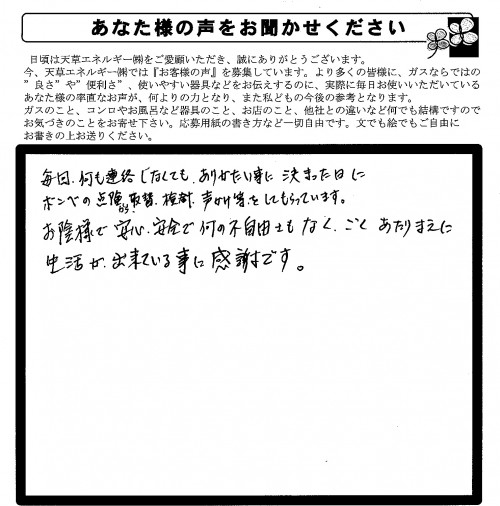 あなた様の声をお聞かせください
日頃は天草エネルギー㈱をご愛顧いただき、誠にありがとうございます。
今、天草エネルギー㈱では『お客様の声』を募集しています。より多くの皆様に、ガスならではの
”良さ”や”便利さ”、使いやすい器具などをお伝えするのに、実際に毎日お使いいただいている
あなた様の率直なお声が、何よりの力となり、また私どもの今後の参考となります。
ガスのこと、コンロやお風呂など器具のこと、お店のこと、他社との違いなど何でも結構ですので
お気づきのことをお寄せ下さい。応募用紙の書き方など一切自由です。文でも絵でもご自由に
お書きの上お送りください。
毎日、何も連絡しなくても、ありがたい事に 決まった日に
ボンベの点険、取替、検針、声かけ等をしてもらっています。
お陰様で 安心、安全で何の不自由さもなく、ごく あたりまえに
生活が、出来ている事に感謝です。